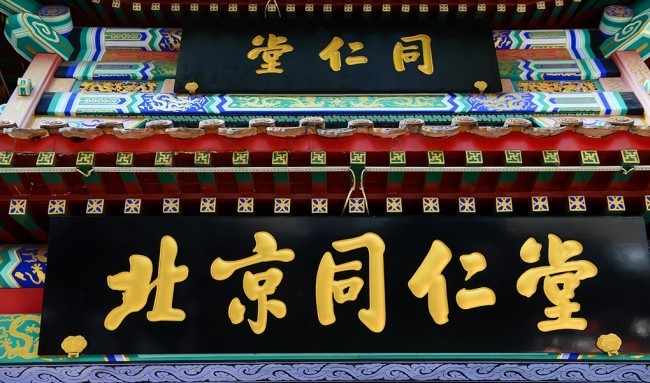 堂仁同
北京同仁堂